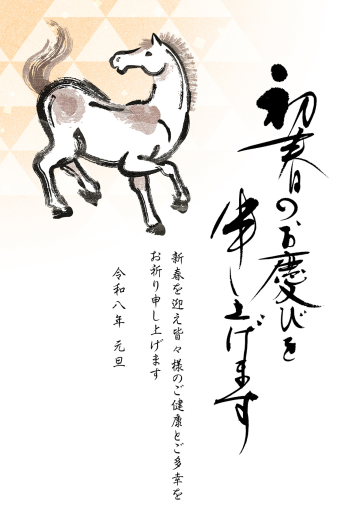 初春のお慶びを
申し上げます
新春を迎え皆々様のご健康とご多幸を
お祈り申し上げます
令和八年 元旦